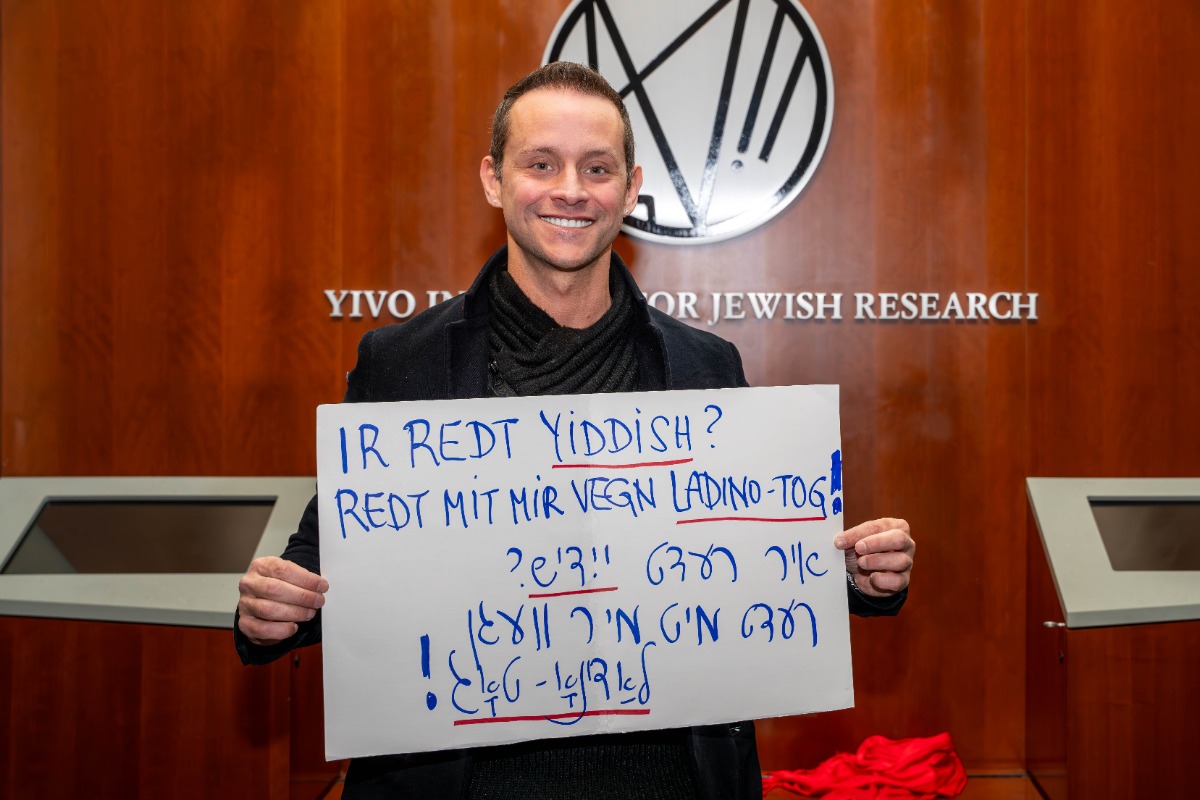 YIVO IN OR JEWISH RESEARCH
IR REDT YIDDISH?
REDT MIT MIR VEGN LADINO-TOG!
איר רעדט ייִדיש?
רעדט מיט מיר וועגן
לאַדינאָ-טאָג!